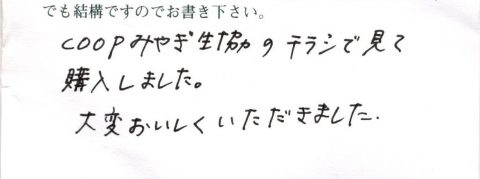 でも結構ですのでお書き下さい。
COOPみやぎ生協のチラシで見て
購入しました。
大変おいしくいただきました.